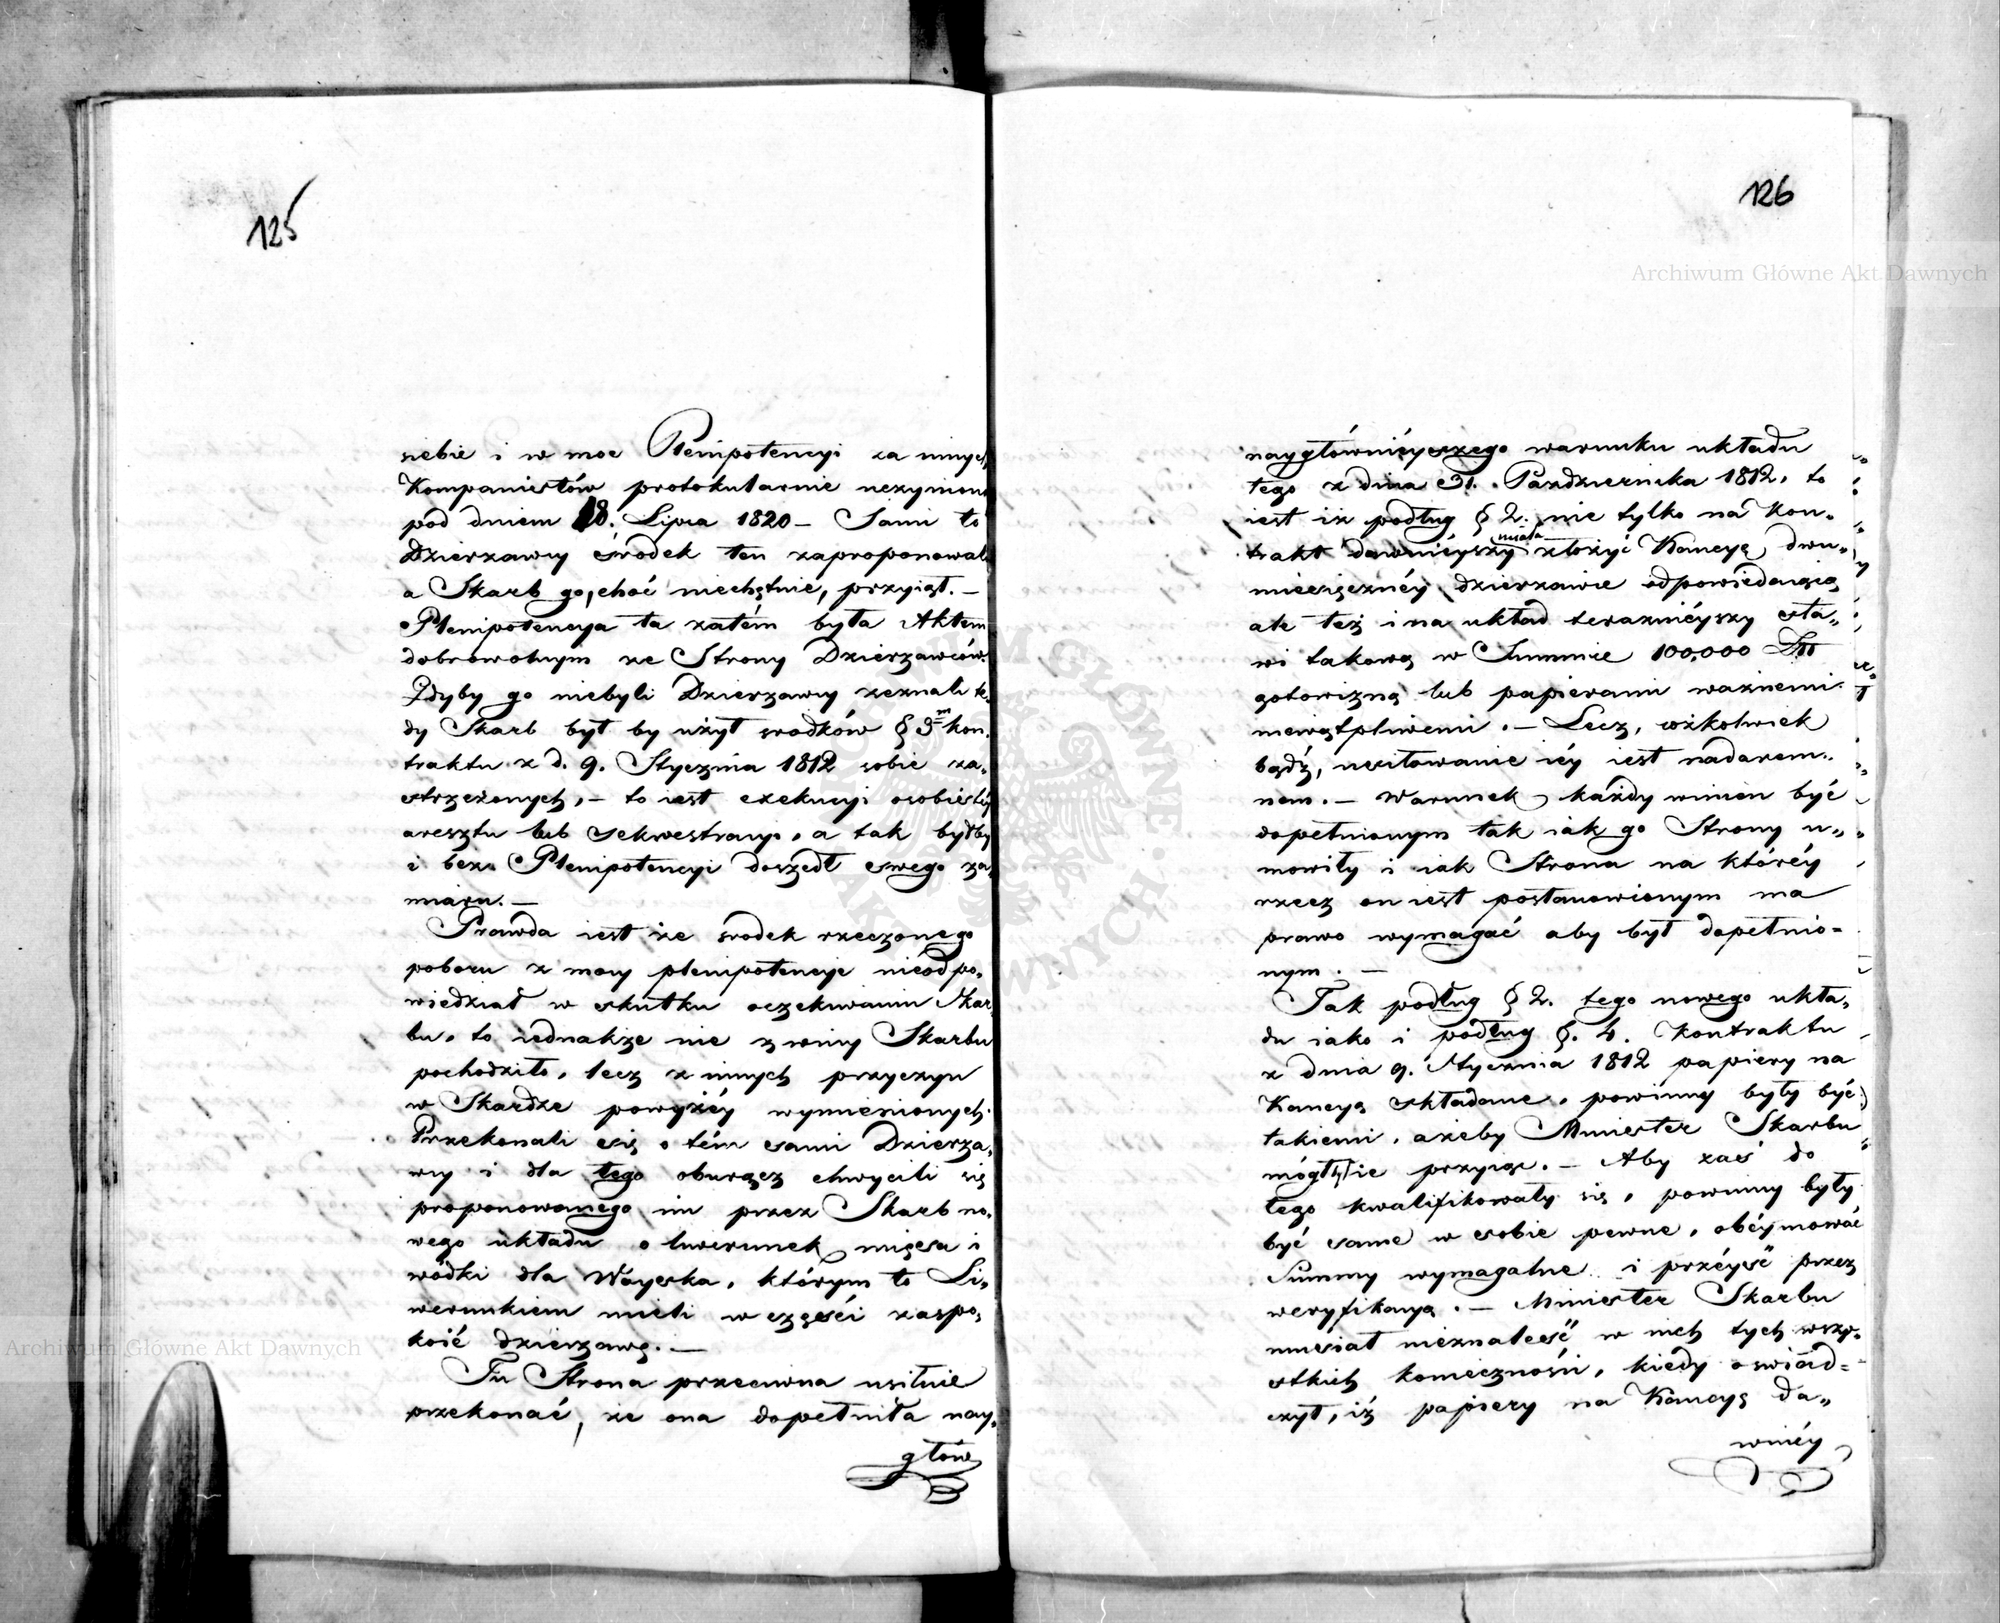 125
siebie i w moc Plenipotencyi za innych
Kompanistów protokularnie uczynione
pod dniem 18. Lipca 1820 – Sami to
Dzierzawcy środek ten zaproponowali
a Skarb go, choć niechętnie, przyiął. –
Plenipotencya ta zatém była Aktem
dobrowolnym ze Strony Dzierzawców.
Gdyby go niebyli Dzierzawcy zeznali te-
dy Skarb był by użył srodków § 3m kon-
traktu z d. 9. Stycznia 1812 sobie za-
strzeżonych, – to iest exekucyi osobistéy
aresztu lub Sekwestracyi, a tak byłby
i bez Plenipotencyi doszedł swego za-
miaru. –
Prawda iest że srodek rzeczonego
poboru z mocy plenipotencyi nieodpo-
wiedział w skutku oczekiwaniu Skar-
bu, to iednakże nie z winy Skarbu
pochodziło, lecz z innych przyczyn
w Skardze powyżéy wymienionych.
Przekonali się o tém sami Dzierza-
wcy i dla tego oburącz chwycili się
proponowanego im przez Skarb no-
wego układu o liwerunek mięsa i
wódki dla Woyska, którym to Li-
werunkiem mieli w części zaspo-
koić dzierzawę. –
Tu Strona przeciwna usilnie
przekonać, że ona dopełniła nay-
głów
126
naygłównieyszego warunku układu
tego z dnia 31. Pazdziernika 1812, to
iest iż podług § 2. nie tylko na kon-
miała
trakt dawnieyszy złożyć Kaucyą, dwu-
miesięcznéy dzierzawie odpowiedaiącą
ale też i na układ terazniéyszy sta-
wi takową w Summie 100,000 Złł
gotowizną lub papierami ważnemi
niewątpliwemi. – Lecz, cożkolwiek
bądź, usiłowanie iéy iest nadarem-
nem. – Warunek każdy winien być
dopełnionym tak iak go Strony u-
mowiły i iak Strona na któréy
rzecz on iest postanowionym ma
prawo wymagać aby był dopełnio-
nym. –
Tak podług § 2. tego nowego ukła-
du iako i podług §. 4. Kontraktu
z dnia 9. Stycznia 1812 papiery na
Kaucyą składane, powinny były być
takiemi, ażeby Minister Skarbu
mógł ie przyiąć. – Aby zaś do
tego kwalifikowały się, powinny były
być same w sobie pewne, obéymować
Summy wymagalne i przéyść przez
weryfikacyą. – Minister Skarbu
musiał nieznaleść w nich tych wszy-
stkich konieczności, kiedy oswiad-
czył, iż papiery na Kaucyą da-
wniéy
Archiwum Główne Akt Dawnych
Archiwum Główne Akt Dawnych